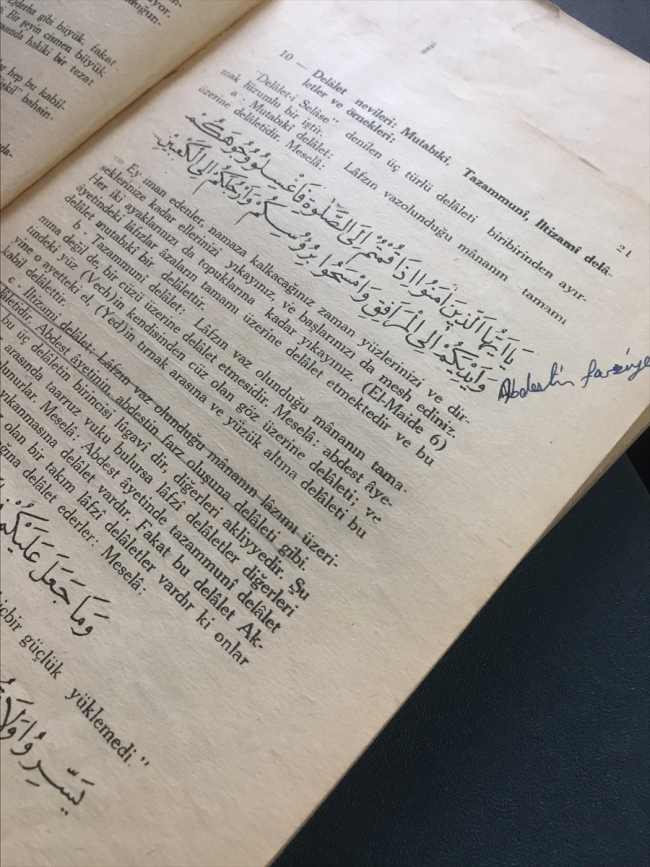 ejderha gibi büyük, fakat
Bir şeyin cismen büyük
hakiki bir tezat
hep bu kabil-
bahsin-
21
10 — Delâlet nevileri; Mutabıkî, Tazammunî, İltizamî delâ-
letler ve örnekleri:
"Delâlet-i Selâse" denilen üç türlü delâleti biribirinden ayır-
mak lüzumlu bir iştir.
a. Mutabıkî delâlet: Lâfzın vazolunduğu mânanın tamamı
üzerine delâletidir. Meselâ:
يا ايها الذين امنوا اذا قمتم الى الصلوة فاغسلوا وجوهكم
وايديكم الى المرافق وامسحوا برؤسكم وارجلكم الى الكعبين
Abdestin farziye
= Ey iman edenler, namaza kalkacağınız zaman yüzlerinizi ve dir-
seklerinize kadar ellerinizi yıkayınız, ve başlarınızı da mesh ediniz.
Her iki ayaklarınızı da topuklarına kadar yıkayınız. (El-Maide 6)
âyetindeki lâfızlar âzaların tamamı üzerine delâlet etmektedir ve bu
delâlet mutabıkî bir delâlettir.
b. Tazammunî delâlet: Lâfzın vaz olunduğu mânanın tama-
mına değil de, bir cüzü üzerine delâlet etmesidir. Meselâ: abdest âye-
tindeki yüz (Vech)in kendisinden cüz olan göz üzerine delâleti; ve
yine o ayetteki el, (Yed)in tırnak arasına ve yüzük altına delâleti bu
kabil delâlettir.
c. İltizamî delâlet: Lâfzın vaz olunduğu mânanın lâzımı üzeri-
delâletidir. Abdest âyetinin abdestin farz oluşuna delâleti gibi.
bu üç delâletin birincisi lügavî dir, diğerleri akliyyedir. Şu
arasında taarruz vuku bulursa lâfzî delâletler diğerleri
olunurlar. Meselâ: Abdest âyetinde tazammunî delâlet
yıkanmasına delâlet vardır. Fakat bu delâlet Ak-
olan bir takım lâfzî delâletler vardır ki onlar
delâlet ederler: Meselâ:
وما جعل عليكم
hiçbir güçlük yüklemedi."
يسروا ولا